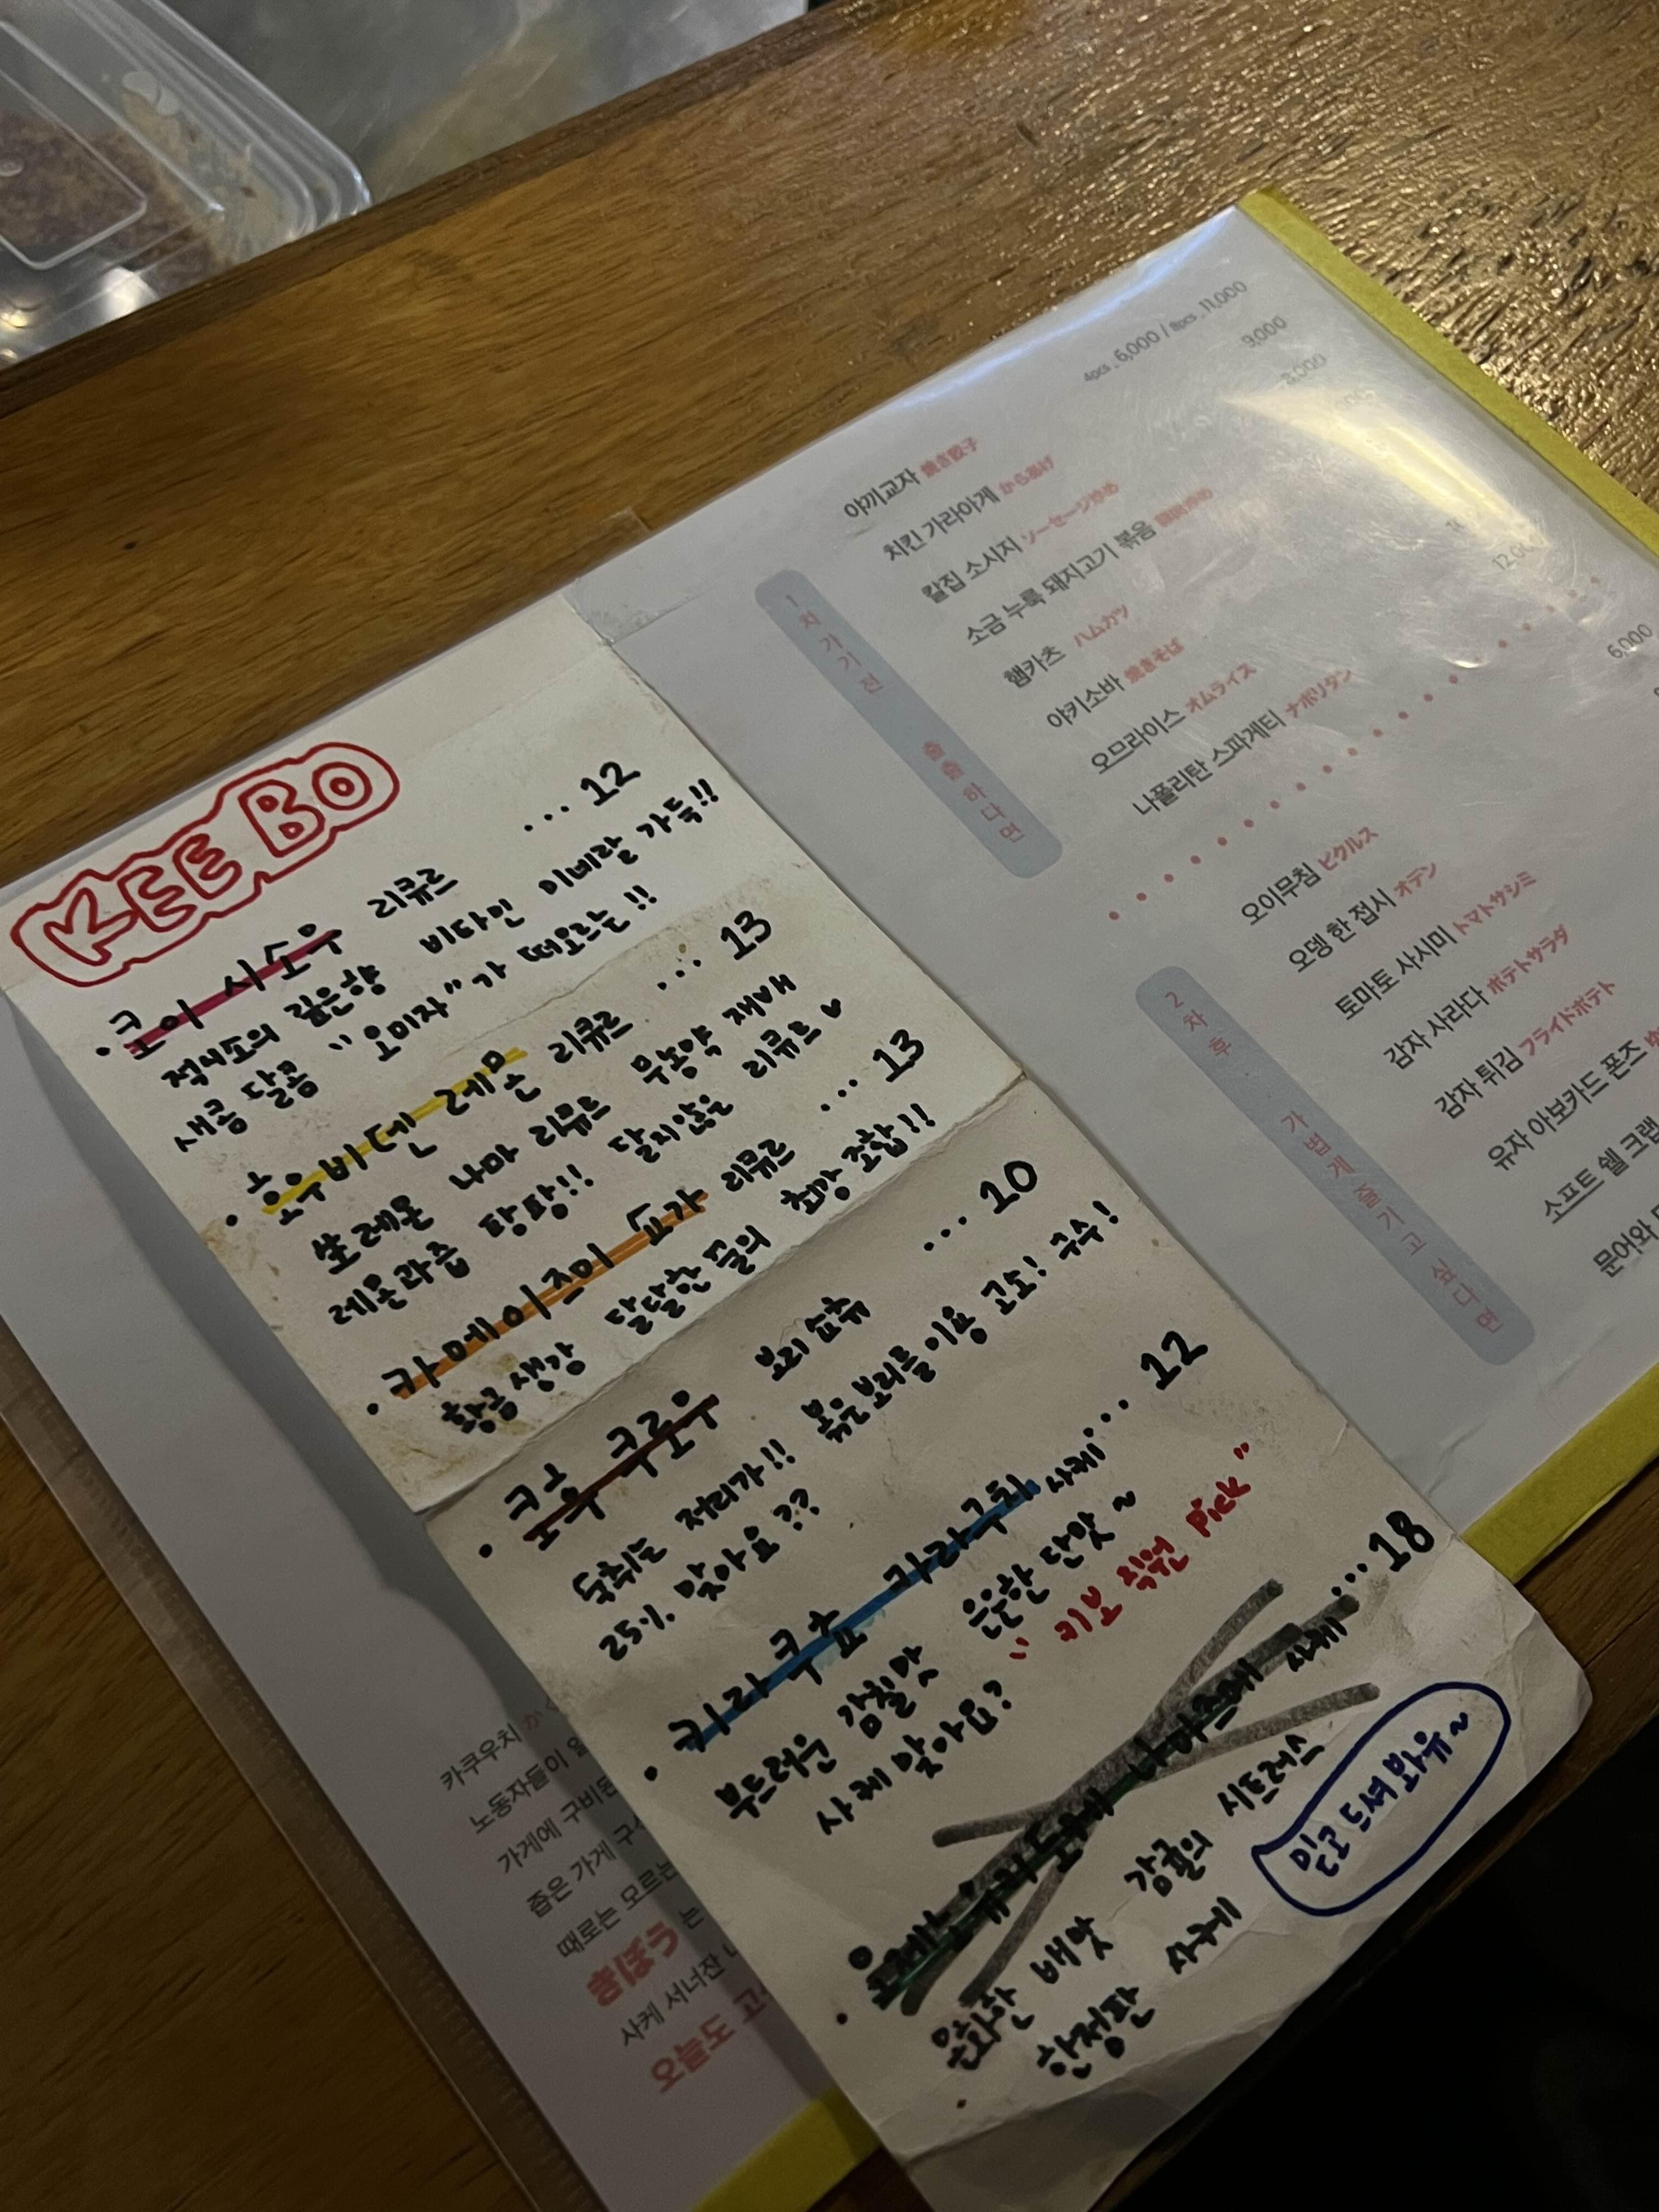 KEE BO
· 코이 시소우 리큐르 ... 12
적시소의 깊은향 비타민 미네랄 가득!!
새콤 달콤 "오미자"가 떠오르는!!
· 호우비덴 레몬 리큐르 ... 13
쌩레몬 나마 리큐르 무농약 재배
레몬과즙 팡팡!! 달지않은 리큐르
· 카메이즈미 교가 리큐르 ... 13
황금생강 달달한 꿀의 최강 조합!!
· 코우 쿠로우 보리쇼츄 ... 10
독취는 저리가!! 볶은보리를이용 고소! 구수!
25% 맞아요??
· 키라쿠쵸 카라구치 사케 ... 12
부드러운 감칠맛 은은한 단맛~
사케 맞아요? "키보 직원 Pick"
사케 ... 18
온화한 배맛 감귤의 시트러스
한정판 사케
믿고 드셔 봐유~
4pcs_6,000 / 8pcs_11,000
9,000
12,000
1차 가기 전 출출하다면
야끼교자 焼き餃子
치킨 가라아게 からあげ
칼집 소시지 ソーセージ炒め
소금 누룩 돼지고기 볶음
햄카츠 ハムカツ
야키소바 焼きそば
오므라이스 オムライス
나폴리탄 스파게티 ナポリタン
6,000
2차 후 가볍게 즐기고 싶다면
오이무침 ピクルス
오뎅 한 접시 オデン
토마토 사시미 トマトサシミ
감자 사라다 ポテトサラダ
감자 튀김 フライドポテト
유자 아보카드 폰즈
소프트 쉘 크랩
문어와
카쿠우치 か
노동자들이
가게에 구비된
좁은 가게
때로는 모르는
きぼう는
사케 서너잔
오늘도